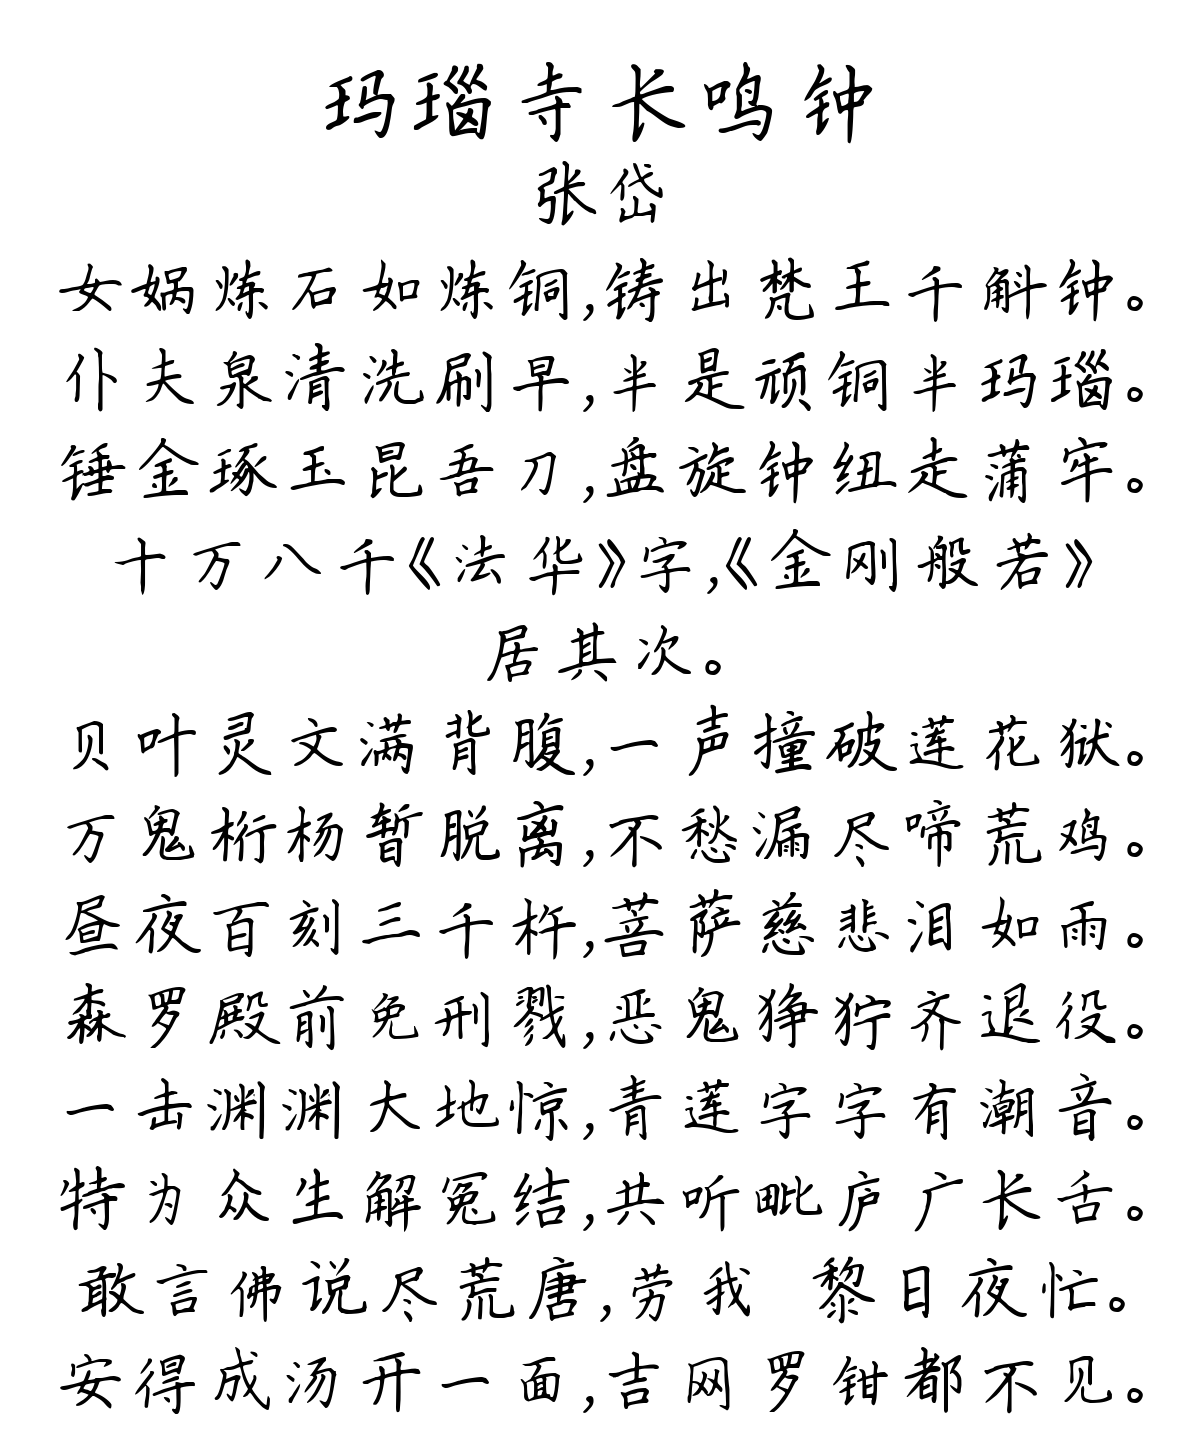 玛瑙寺长鸣钟
张岱
女娲炼石如炼铜,铸出梵王千斛钟。
仆夫泉清洗刷早,半是顽铜半玛瑙。
锤金琢玉昆吾刀,盘旋钟纽走蒲牢。
十万八千《法华》字,《金刚般若》
居其次。
贝叶灵文满背腹,一声撞破莲花狱。
万鬼桁杨暂脱离,不愁漏尽啼荒鸡。
昼夜百刻三千杵,菩萨慈悲泪如雨。
森罗殿前免刑戮,恶鬼狰狞齐退役。
一击渊渊大地惊,青莲字字有潮音。
特为众生解冤结,共听毗庐广长舌。
敢言佛说尽荒唐,劳我 黎日夜忙。
安得成汤开一面,吉网罗钳都不见。